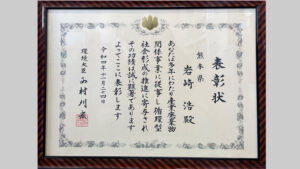 表彰状
熊本県
岩崎 浩殿
あなたは多年にわたり産業廃棄物
関係事業に従事し循環型
社会形成の推進に寄与され
その功績は誠に顕著であります
よってここに表彰します
令和四年十一月二十四日
環境大臣 西村明宏